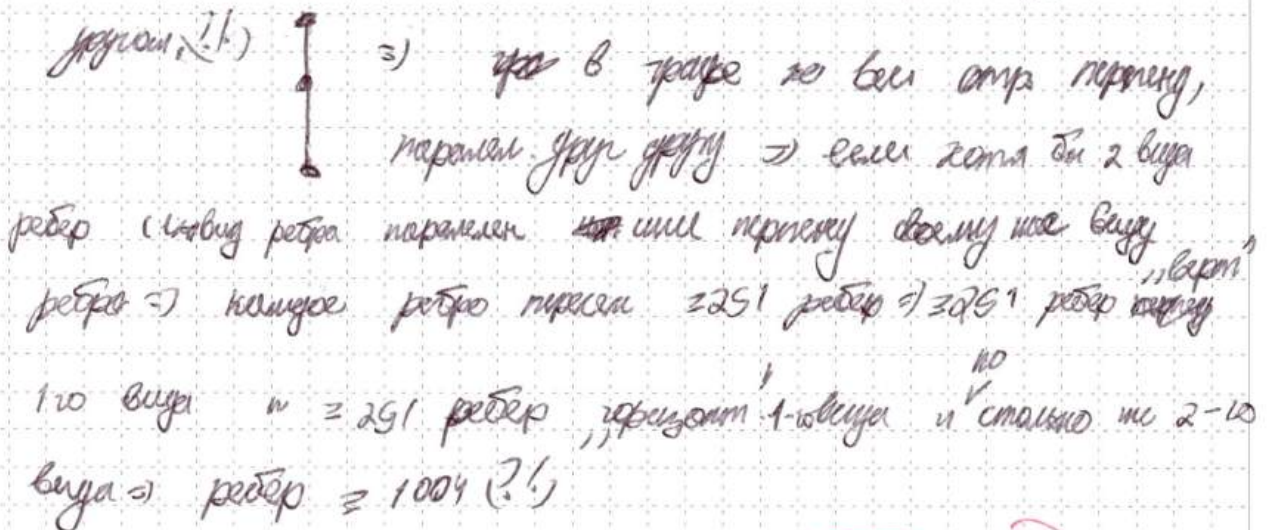 другом (?!)
⇒ в графе не все отр. перпенд,
паралел. друг другу ⇒ если хотя бы 2 вида
ребер (1-вид ребра паралелен или перпенд своему же виду
ребра ⇒ каждое ребро пересек ≥251 ребер ⇒ ≥251 ребер „верт“
1-го вида и ≥251 ребер „горизонт“ 1-го вида и по столько же 2-го
вида ⇒ ребер ≥ 1004 (?!)